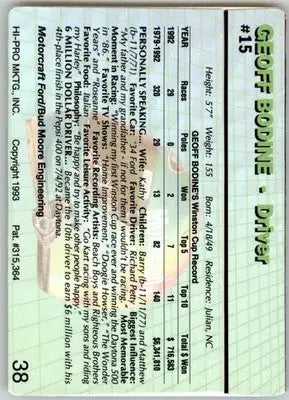 GEOFF BODINE - Driver
#15
Height: 5'7" Weight: 155 Born: 4/18/49 Residence: Julian, NC
GEOFF BODINE'S Winston Cup Record
YEAR Races Poles Won Top 5 Top 10 Total $ Won
1992 29 0 2 7 11 $ 716,583
1979-1992 320 29 13 82 140 $6,341,810
PERSONALLY SPEAKING... Wife: Kathy Children: Barry (b-11/11/77) and Matthew
(b-11/7/71) Favorite Car: '34 Ford Favorite Driver: Richard Petty Biggest Influence:
"My father and my grandfather - if not for them I wouldn't be racing." Most Memorable
Moment in Racing: First Winston Cup race and winning the Daytona 500
in '86. Favorite TV Shows: "Home Improvement," "Doogie Howser," "The Wonder
Years" and "Roseanne" Favorite Recording Artists: Beach Boys and Righteous Brothers
Favorite Food: Italian Favorite Leisure Activity: "Go Kart racing with my sons and riding
my Harley" Philosophy: "Be happy and try to make other people happy."
6 MILLION DOLLAR DRIVER... Became the 10th driver to earn $6 million with his
4th-place finish in the Pepsi 400 on 7/4/92 at Daytona
Motorcraft Ford/Bud Moore Engineering
HI-PRO MKTG., INC. Copyright 1993 Pat. #315,364
38